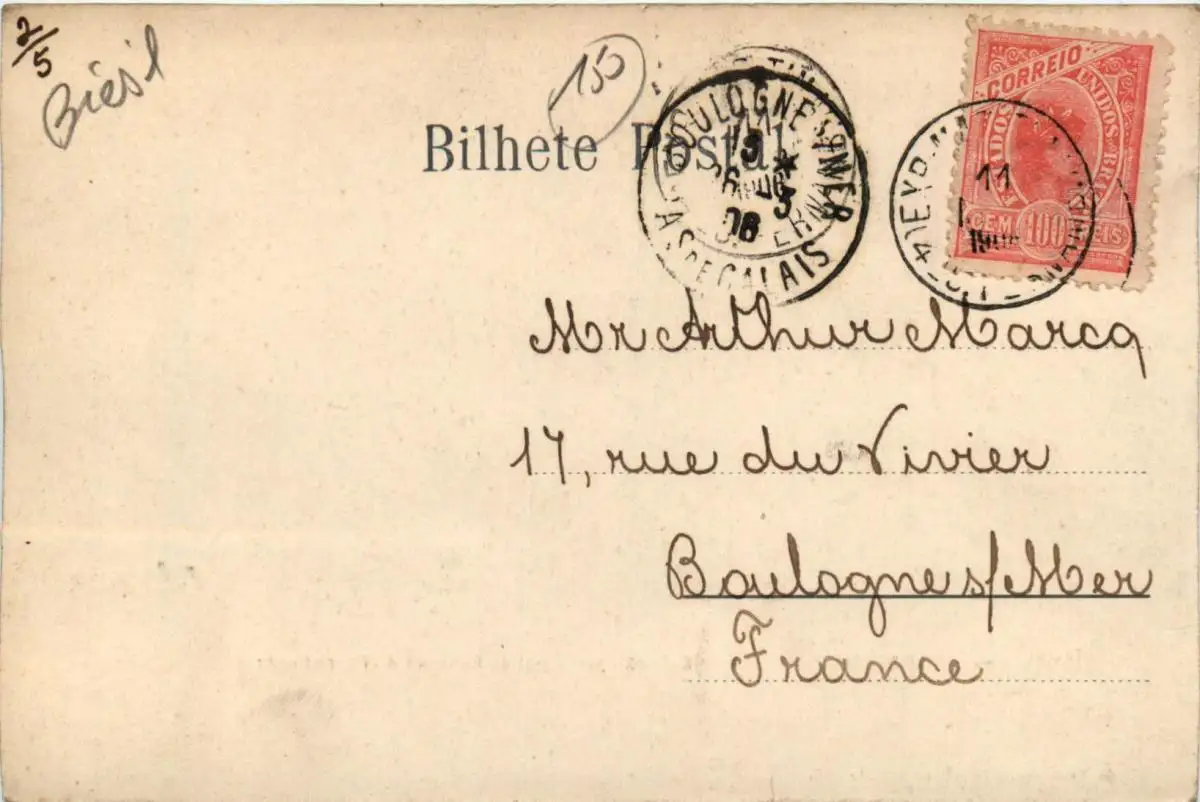 2/5
Brésil
150
Bilhete Postal
BOULOGNE S MER
PAS DE CALAIS
CORREIO
ESTADOS UNIDOS DO BRAZIL
CEM 100 REIS
11
Mr Arthur Marcq
17, rue du Vivier
Boulogne s/Mer
France